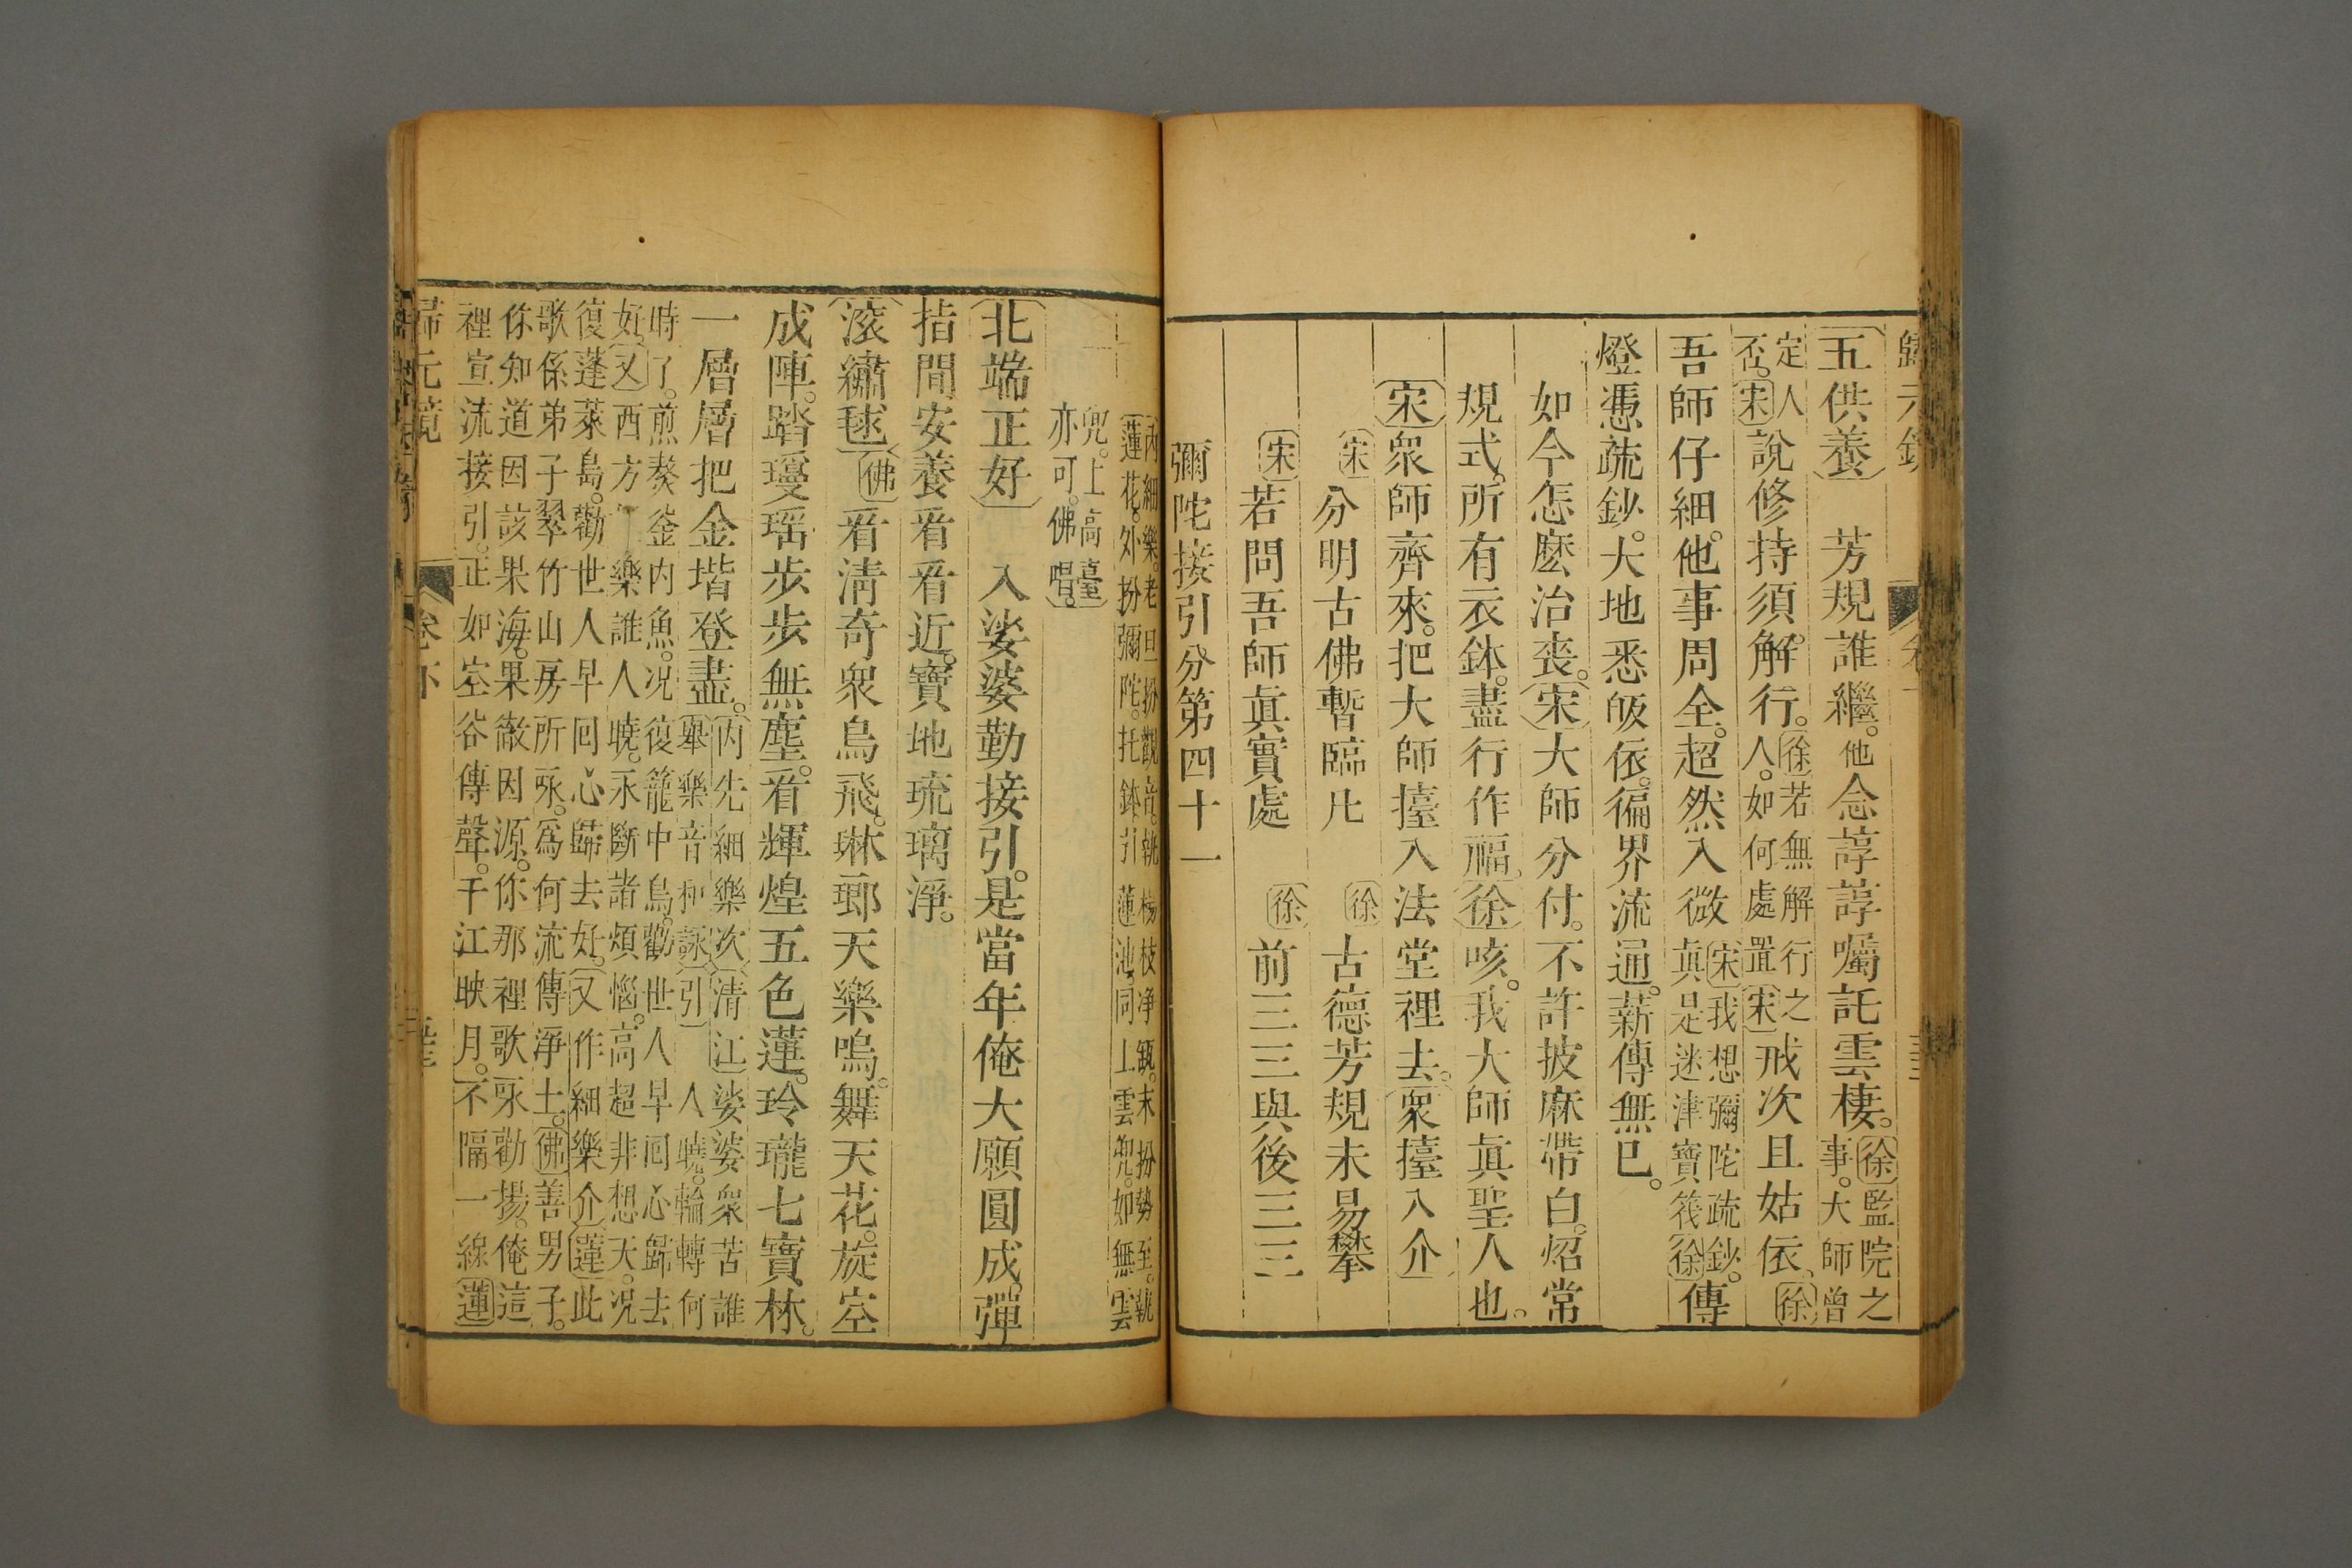 歸元鏡
五供養　芳規誰繼。他念諄諄囑託雲棲。徐監院之
事。大師曾
定人
否。宋說修持須解行。徐若無解行之
人。如何處置宋戒次且姑依、徐
吾師仔細。他事周全。超然入微宋我想彌陀疏鈔。
眞是迷津寶筏徐傳
燈憑疏鈔。大地悉皈依。徧界流通。薪傳無已。
如今怎麽治喪。宋大師分付。不許披麻帶白。炤常
規式。所有衣鉢。盡行作福。徐咳。我大師眞聖人也。
宋衆師齊來。把大師擡入法堂裡去。衆擡入介
宋分明古佛暫臨凡　徐古德芳規未易攀
宋若問吾師眞實處　徐前三三與後三三
彌陀接引分第四十一
內細樂。老旦扮觀音。執楊枝淨瓶。末扮勢至。執
蓮花。外扮彌陀。托鉢引蓮池。同上雲兜。如無雲
兜。上高臺
亦可。佛唱。
北端正好　入娑婆勤接引。是當年俺大願圓成。彈
指間安養看看近。寶地琉璃淨。
滾繡毬佛看清奇衆鳥飛。琳瑯天樂鳴。舞天花。旋空
成陣。踏璎瑶步步無塵。看輝煌五色蓮。玲瓏七寶林。
一層層把金堦登盡。內先細樂次清江娑婆衆苦誰
舉樂音和詠引　人曉。輪轉何
時了。煎熬釜內魚。况復籠中鳥。勸世人早回心歸去
好。又西方樂誰人曉。永斷諸煩惱。高超非想天。况
復蓬萊島。勸世人早回心歸去好。又作細樂介蓮此
歌係弟子翠竹山房所詠。爲何流傳淨土。佛善男子。
你知道因該果海。果徹因源。你那裡歌詠勸揚。俺這
裡宣流接引。正如空谷傳聲。千江映月。不隔一線蓮
歸元鏡
卷下